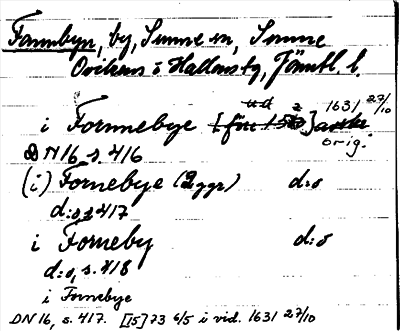 Fannbyn, by, Sunne sn, Sunne
Ovikens o Hallens tg, Jämtl. l.
i Fornnebye 1631 27/10
orig.
DN 16, s. 416
(i) Fornebye (2 ggr) d:o
d:o, s. 417
i Forneby d:o
d:o, s. 418
i Fornebye
DN 16, s. 417. [15]73 6/5 i vid. 1631 27/10